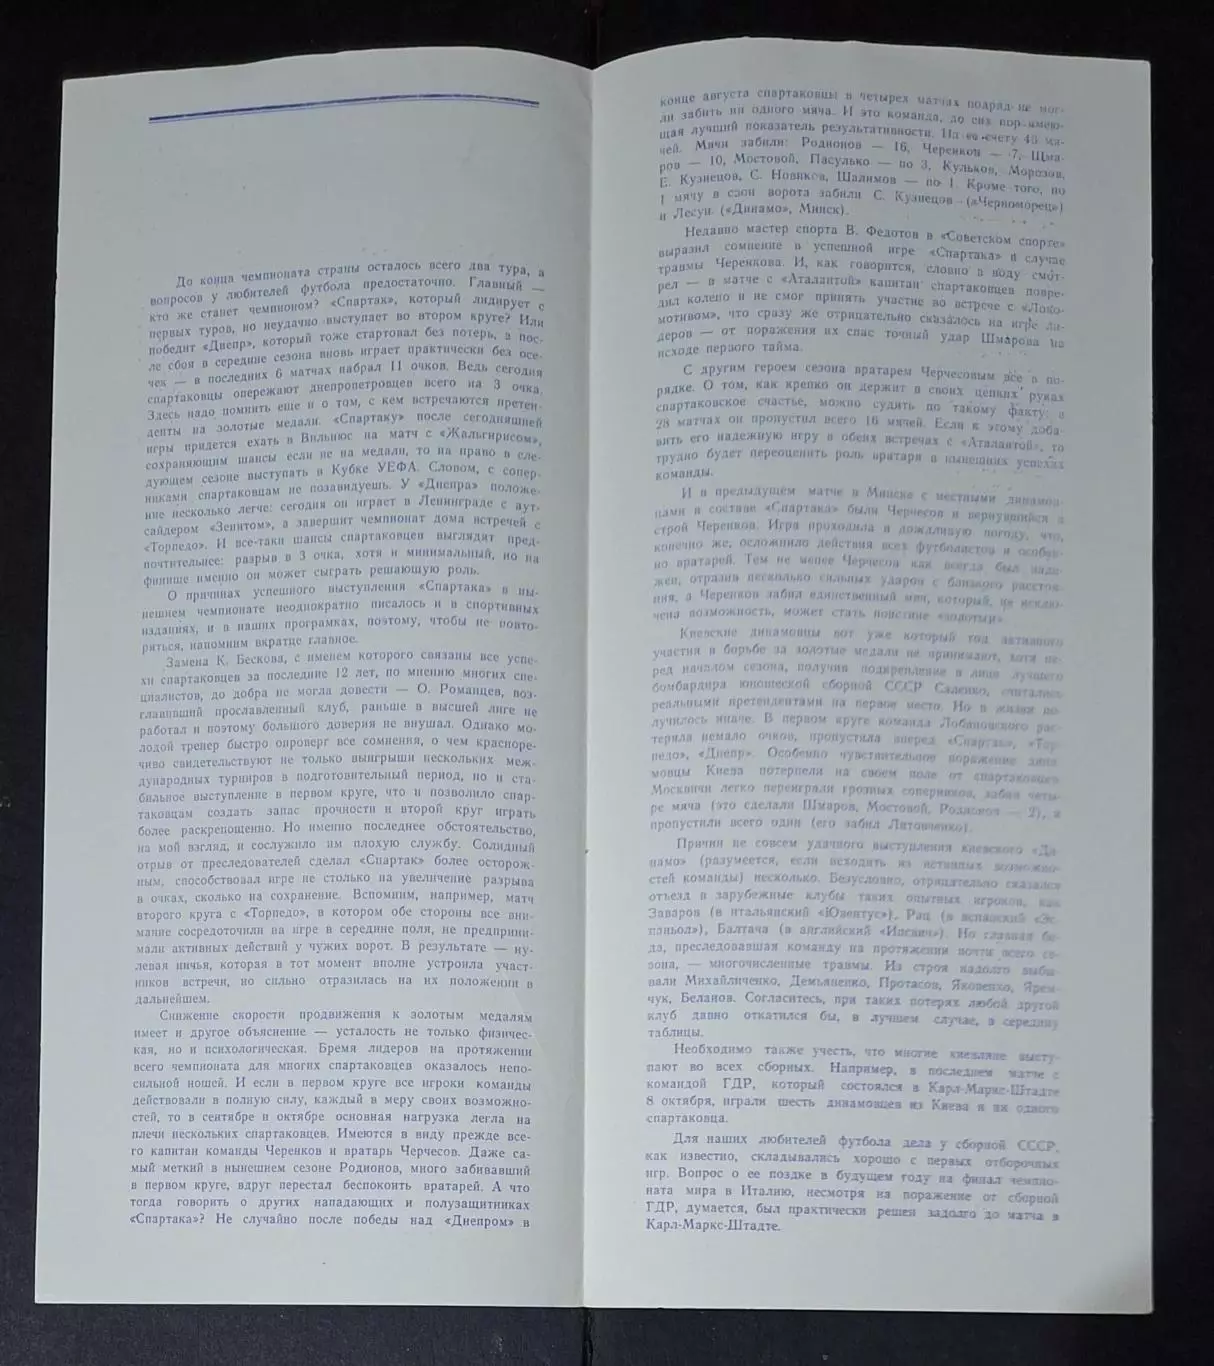 До конца чемпионата страны осталось всего два тура, а
вопросов у любителей футбола предостаточно. Главный —
кто же станет чемпионом? «Спартак», который лидирует с
первых туров, но неудачно выступает во втором круге? Или
победит «Днепр», который тоже стартовал без потерь, а пос-
ле сбоя в середине сезона вновь играет практически без осе-
чек — в последних 6 матчах набрал 11 очков. Ведь сегодня
спартаковцы опережают днепропетровцев всего на 3 очка.
Здесь надо помнить еще и о том, с кем встречаются претен-
денты на золотые медали. «Спартаку» после сегодняшней
игры придется ехать в Вильнюс на матч с «Жальгирисом»,
сохраняющим шансы если не на медали, то на право в сле-
дующем сезоне выступать в Кубке УЕФА. Словом, с сопер-
никами спартаковцам не позавидуешь. У «Днепра» положе-
ние несколько легче: сегодня он играет в Ленинграде с аут-
сайдером «Зенитом», а завершит чемпионат дома встречей с
«Торпедо». И все-таки шансы спартаковцев выглядят пред-
почтительнее: разрыв в 3 очка, хотя и минимальный, но на
финише именно он может сыграть решающую роль.
О причинах успешного выступления «Спартака» в ны-
нешнем чемпионате неоднократно писалось и в спортивных
изданиях, и в наших програмках, поэтому, чтобы не повто-
ряться, напомним вкратце главное.
Замена К. Бескова, с именем которого связаны все успе-
хи спартаковцев за последние 12 лет, по мнению многих спе-
циалистов, до добра не могла довести — О. Романцев, воз-
главивший прославленный клуб, раньше в высшей лиге не
работал и поэтому большого доверия не внушал. Однако мо-
лодой тренер быстро опроверг все сомнения, о чем красноре-
чиво свидетельствуют не только выигрыши нескольких меж-
дународных турниров в подготовительный период, но и ста-
бильное выступление в первом круге, что и позволило спар-
таковцам создать запас прочности и второй круг играть
более раскрепощенно. Но именно последнее обстоятельство,
на мой взгляд, и сослужило им плохую службу. Солидный
отрыв от преследователей сделал «Спартак» более осторож-
ным, способствовал игре не столько на увеличение разрыва
в очках, сколько на сохранение. Вспомним, например, матч
второго круга с «Торпедо», в котором обе стороны все вни-
мание сосредоточили на игре в середине поля, не предприни-
мали активных действий у чужих ворот. В результате — ну-
левая ничья, которая в тот момент вполне устроила участ-
ников встречи, но сильно отразилась на их положении в
дальнейшем.
Снижение скорости продвижения к золотым медалям
имеет и другое объяснение — усталость не только физичес-
кая, но и психологическая. Бремя лидеров на протяжении
всего чемпионата для многих спартаковцев оказалось непо-
сильной ношей. И если в первом круге все игроки команды
действовали в полную силу, каждый в меру своих возможно-
стей, то в сентябре и октябре основная нагрузка легла на
плечи нескольких спартаковцев. Имеются в виду прежде все-
го капитан команды Черенков и вратарь Черчесов. Даже са-
мый меткий в нынешнем сезоне Родионов, много забивавший
в первом круге, вдруг перестал беспокоить вратарей. А что
тогда говорить о других нападающих и полузащитниках
«Спартака»? Не случайно после победы над «Днепром» в
конце августа спартаковцы в четырех матчах подряд не мог-
ли забить ни одного мяча. И это команда, до сих пор имею-
щая лучший показатель результативности. На ее счету 46 мя-
чей. Мячи забили: Родионов — 16, Черенков — 7, Шма-
ров — 10, Мостовой, Пасулько — по 3, Кульков, Морозов,
Е. Кузнецов, С. Новиков, Шалимов — по 1. Кроме того, по
1 мячу в свои ворота забили С. Кузнецов («Черноморец»)
и Лесун («Динамо», Минск).
Недавно мастер спорта В. Федотов в «Советском спорте»
выразил сомнение в успешной игре «Спартака» в случае
травмы Черенкова. И, как говорится, словно в воду смот-
рел — в матче с «Аталантой» капитан спартаковцев повре-
дил колено и не смог принять участие во встрече с «Локо-
мотивом», что сразу же отрицательно сказалось на игре ли-
деров — от поражения их спас точный удар Шмарова на
исходе первого тайма.
С другим героем сезона вратарем Черчесовым все в по-
рядке. О том, как крепко он держит в своих цепких руках
спартаковское счастье, можно судить по такому факту: в
28 матчах он пропустил всего 16 мячей. Если к этому доба-
вить его надежную игру в обеих встречах с «Аталантой», то
трудно будет переоценить роль вратаря в нынешних успехах
команды.
И в предыдущем матче в Минске с местными динамов-
цами в составе «Спартака» были Черчесов и вернувшийся в
строй Черенков. Игра проходила в дождливую погоду, что,
конечно же, осложнило действия всех футболистов и особен-
но вратарей. Тем не менее Черчесов как всегда был наде-
жен, отразив несколько сильных ударов с близкого расстоя-
ния, а Черенков забил единственный мяч, который, не исклю-
чена возможность, может стать поистине «золотым».
Киевские динамовцы вот уже который год активного
участия в борьбе за золотые медали не принимают, хотя пе-
ред началом сезона, получив подкрепление в лице лучшего
бомбардира юношеской сборной СССР Саленко, считались
реальными претендентами на первое место. Но в жизни по-
лучилось иначе. В первом круге команда Лобановского рас-
теряла немало очков, пропустила вперед «Спартак», «Тор-
педо», «Днепр». Особенно чувствительное поражение дина-
мовцы Киева потерпели на своем поле от спартаковцев.
Москвичи легко переиграли грозных соперников, забив четы-
ре мяча (это сделали Шмаров, Мостовой, Родионов — 2), и
пропустили всего один (его забил Литовченко).
Причин не совсем удачного выступления киевского «Ди-
намо» (разумеется, если исходить из истинных возможно-
стей команды) несколько. Безусловно, отрицательно сказался
отъезд в зарубежные клубы таких опытных игроков, как
Заваров (в итальянский «Ювентус»), Рац (в испанский «Эс-
паньол»), Балтача (в английский «Ипсвич»). Но главная бе-
да, преследовавшая команду на протяжении почти всего се-
зона, — многочисленные травмы. Из строя надолго выбы-
вали Михайличенко, Демьяненко, Протасов, Яковенко, Ярем-
чук, Беланов. Согласитесь, при таких потерях любой другой
клуб давно откатился бы, в лучшем случае, в середину
таблицы.
Необходимо также учесть, что многие киевляне высту-
пают во всех сборных. Например, в последнем матче с
командой ГДР, который состоялся в Карл-Маркс-Штадте
8 октября, играли шесть динамовцев из Киева и ни одного
спартаковца.
Для наших любителей футбола дела у сборной СССР,
как известно, складывались хорошо с первых отборочных
игр. Вопрос о ее поздке в будущем году на финал чемпио-
ната мира в Италию, несмотря на поражение от сборной
ГДР, думается, был практически решен задолго до матча в
Карл-Маркс-Штадте.